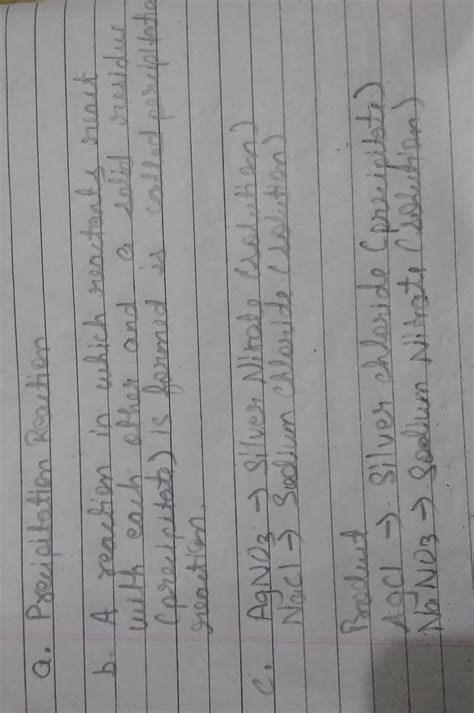 a. Precipitation Reaction
b. A reaction in which reactants react
with each other and a solid residue
(precipitate) is formed is called precipitation
reaction.
c. AgNO3 → Silver Nitrate (solution)
NaCl → Sodium chloride (solution)
Product
AgCl → Silver chloride (precipitate)
NaNO3 → Sodium Nitrate (solution)